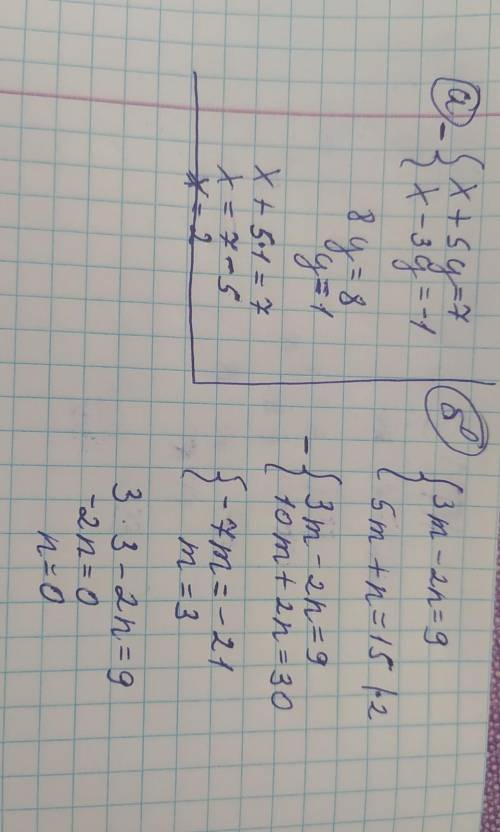 а
- { x + 5y = 7
{ x - 3y = -1
8y = 8
y = 1
x + 5·1 = 7
x = 7 - 5
x = 2
б
{ 3m - 2n = 9
{ 5m + n = 15 |·2
- { 3m - 2n = 9
{ 10m + 2n = 30
{ -7m = -21
m = 3
3 · 3 - 2n = 9
-2n = 0
n = 0